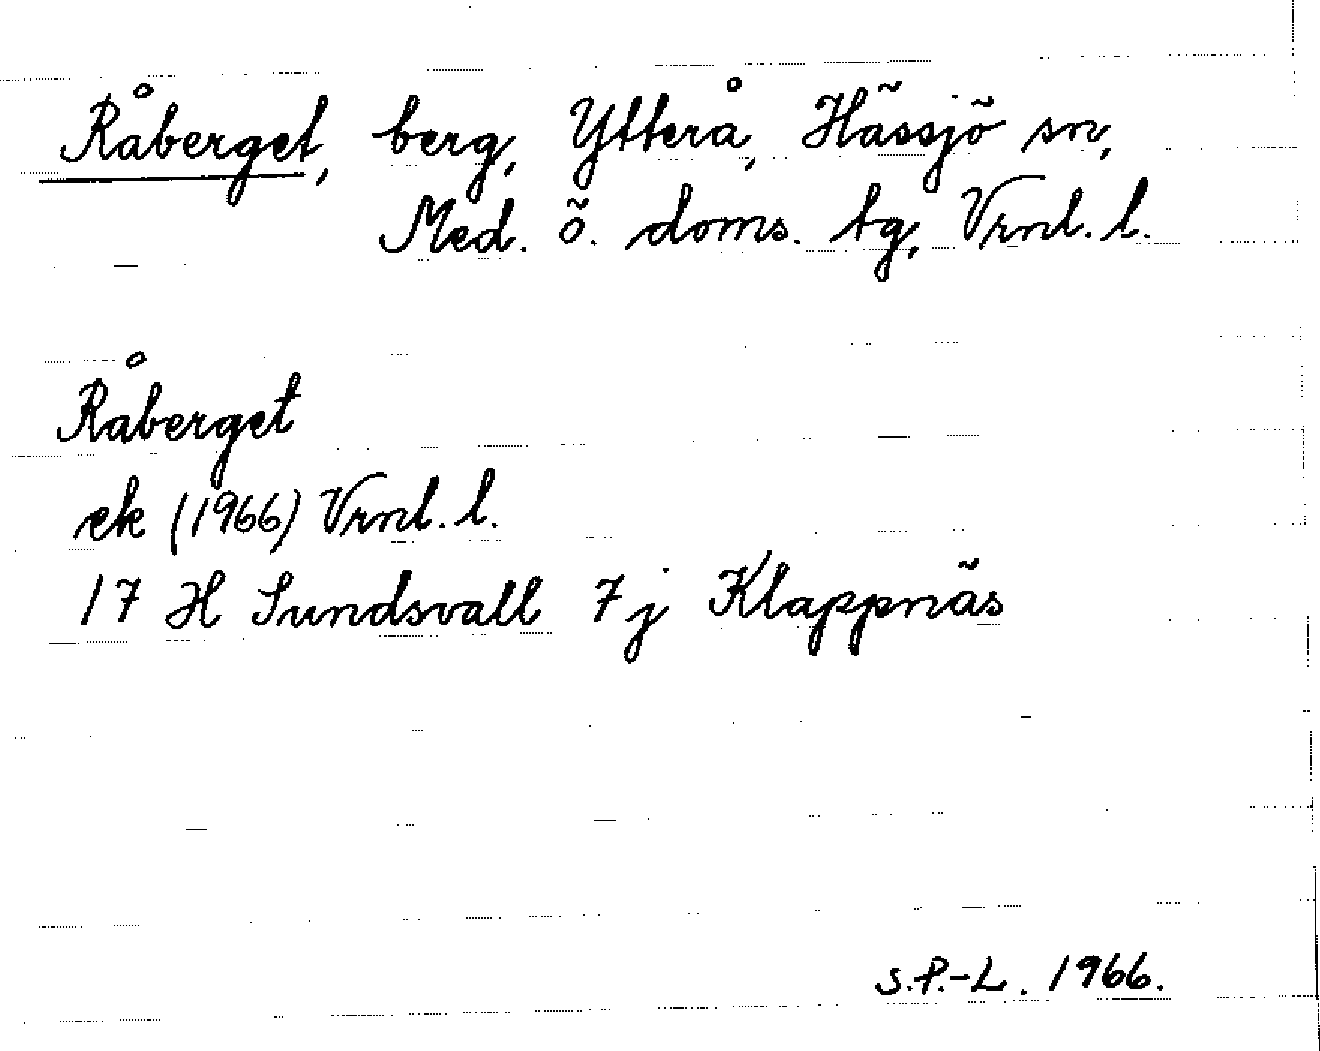 Råberget, berg, Ytterå, Hässjö sn,
Med. ö. doms. tg, Vrnl. l.
Råberget
ek (1966) Vrnl. l.
17 H Sundsvall 7j Klappnäs
S.P.-L. 1966.